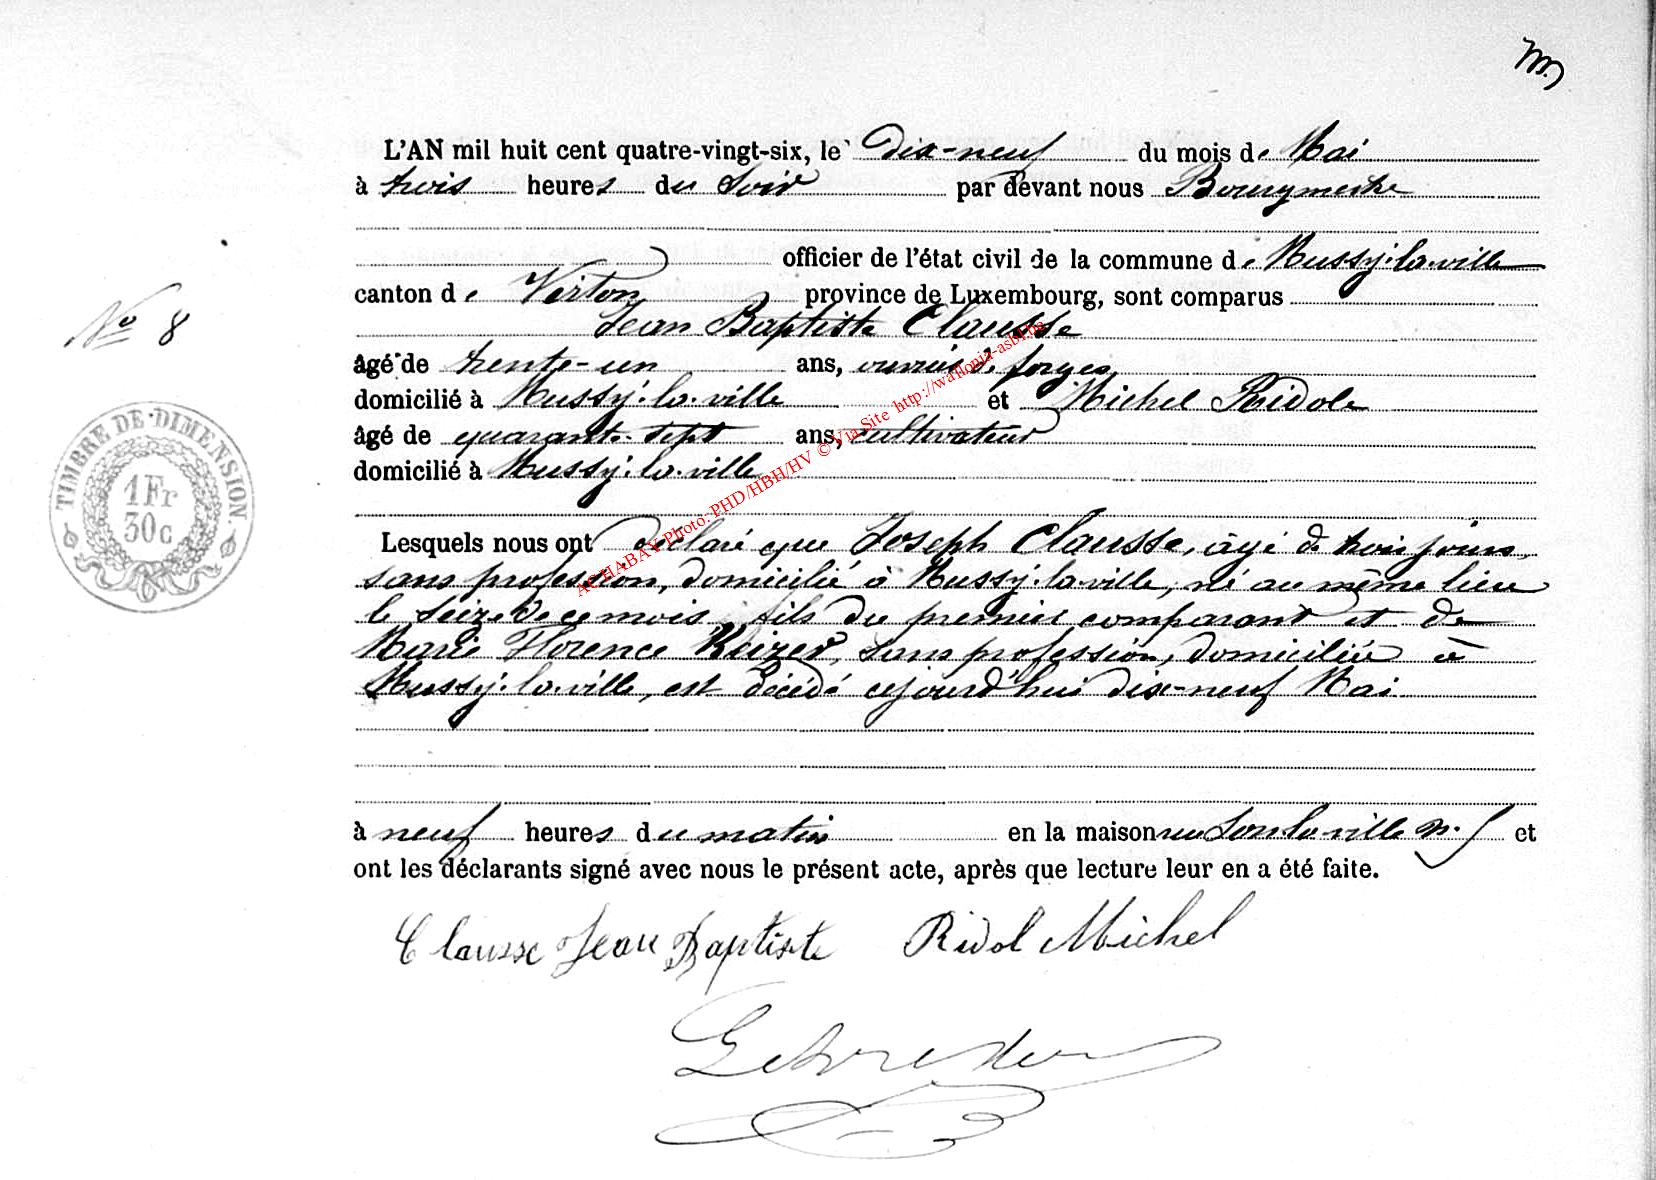 L'AN mil huit cent quatre-vingt-six, le dix-neuf du mois de Mai
à trois heures du Soir par devant nous Bourgmestre
officier de l'état civil de la commune de Mussy-la-ville
canton de Virton province de Luxembourg, sont comparus
Jean Baptiste Clausse
âgé de trente-un ans, ouvrier de forges
domicilié à Mussy-la-ville et Michel Ridole
âgé de quarante-sept ans, cultivateur
domicilié à Mussy-la-ville
No 8
TIMBRE DE DIMENSION.
1Fr
30c
ACHABAY Photo: PHD/HBH/HV © Via Site http://wallonia-asbl.be
Lesquels nous ont déclaré que Joseph Clausse, âgé de trois jours,
sans profession, domicilié à Mussy-la-ville, né au même lieu
le seize de ce mois, fils du premier comparant et de
Marie Florence Keizer, sans profession, domiciliée à
Mussy-la-ville, est décédé cejourd'hui dix-neuf Mai
à neuf heures du matin en la maison rue Sous la ville n. 5 et
ont les déclarants signé avec nous le présent acte, après que lecture leur en a été faite.
Clausse Jean Baptiste Ridol Michel